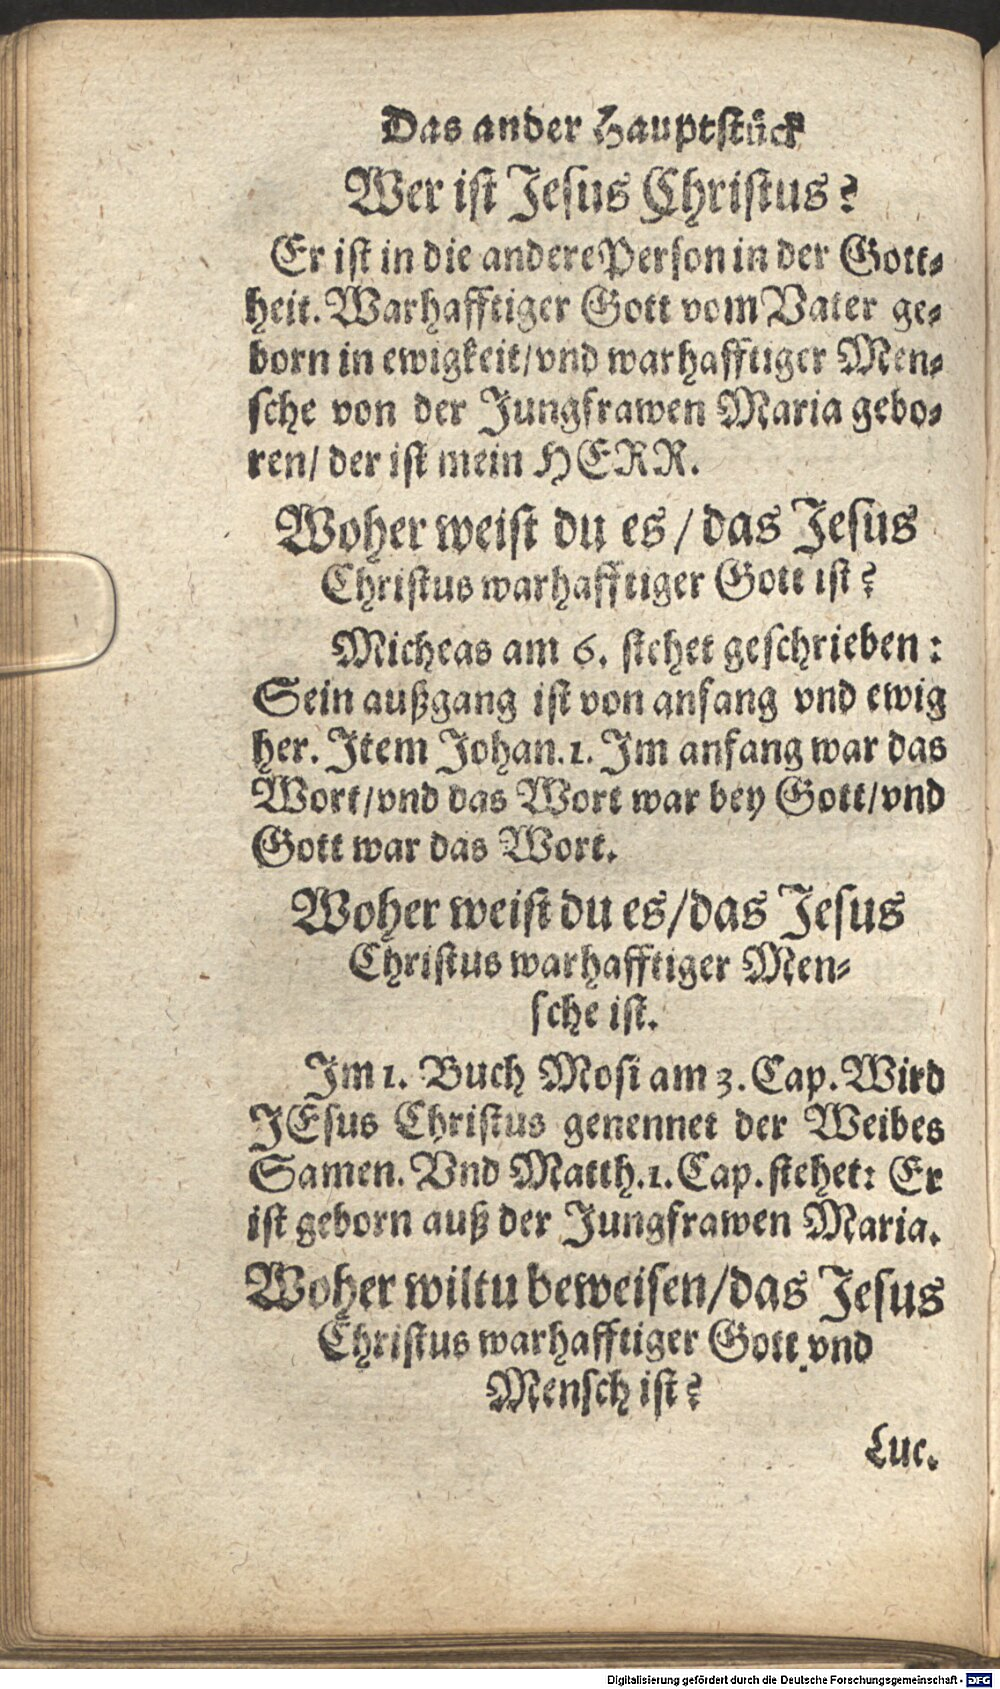 Das ander Hauptstück
Wer ist Jesus Christus?
Er ist in die andere Person in der Gott-
heit. Warhafftiger Gott vom Vater ge-
born in ewigkeit/ vnd warhafftiger Men-
sche von der Jungfrawen Maria gebo-
ren/ der ist mein HERR.
Woher weist du es/ das Jesus
Christus warhafftiger Gott ist?
Micheas am 6. stehet geschrieben:
Sein außgang ist von anfang vnd ewig
her. Item Johan. 1. Im anfang war das
Wort/ vnd das Wort war bey Gott/ vnd
Gott war das Wort.
Woher weist du es/ das Jesus
Christus warhafftiger Men-
sche ist.
Im 1. Buch Mosi am 3. Cap. Wird
JEsus Christus genennet der Weibes
Samen. Vnd Matth. 1. Cap. stehet: Er
ist geborn auß der Jungfrawen Maria.
Woher wiltu beweisen/ das Jesus
Christus warhafftiger Gott vnd
Mensch ist?
Luc.
Digitalisierung gefördert durch die Deutsche Forschungsgemeinschaft - DFG